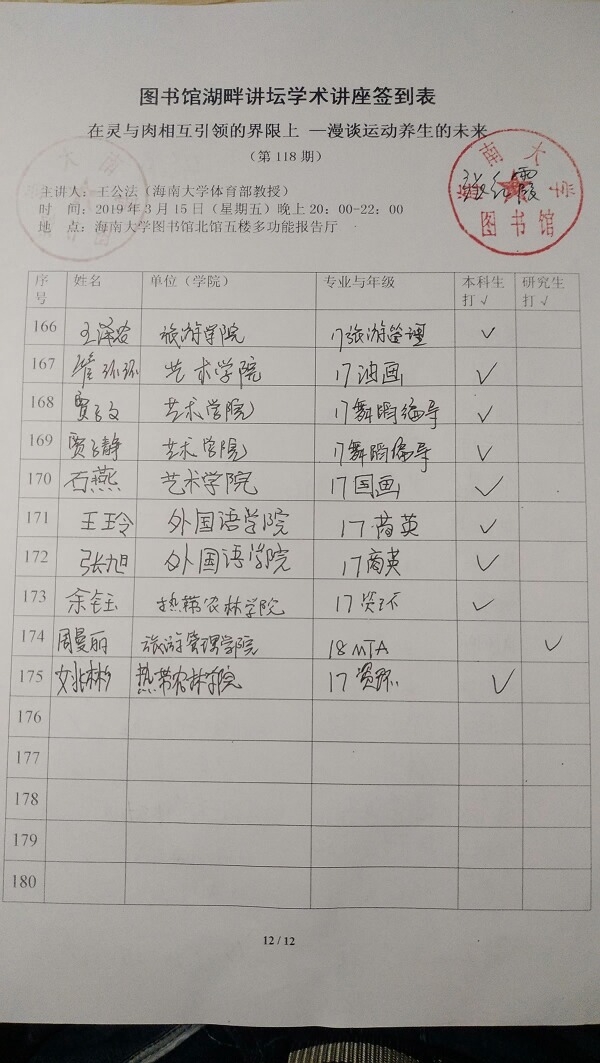 图书馆湖畔讲坛学术讲座签到表
在灵与肉相互引领的界限上 —漫谈运动养生的未来
（第 118 期）
主讲人：王公法（海南大学体育部教授）
时 间：2019 年 3 月 15 日（星期五）晚上 20：00-22：00
地 点：海南大学图书馆北馆五楼多功能报告厅
海南大学
图书馆
序号 姓名 单位（学院） 专业与年级 本科生打√ 研究生打√
166 旅游学院 17旅游管理 ✓
167 管环环 艺术学院 17油画 ✓
168 贾文 艺术学院 17舞蹈编导 ✓
169 贾静 艺术学院 17舞蹈编导 ✓
170 石燕 艺术学院 17国画 ✓
171 王玲 外国语学院 17商英 ✓
172 张旭 外国语学院 17商英 ✓
173 余钰 热带农林学院 17资环 ✓
174 周曼丽 旅游管理学院 18MTA ✓
175 热带农林学院 17资环 ✓
176
177
178
179
180
12 / 12